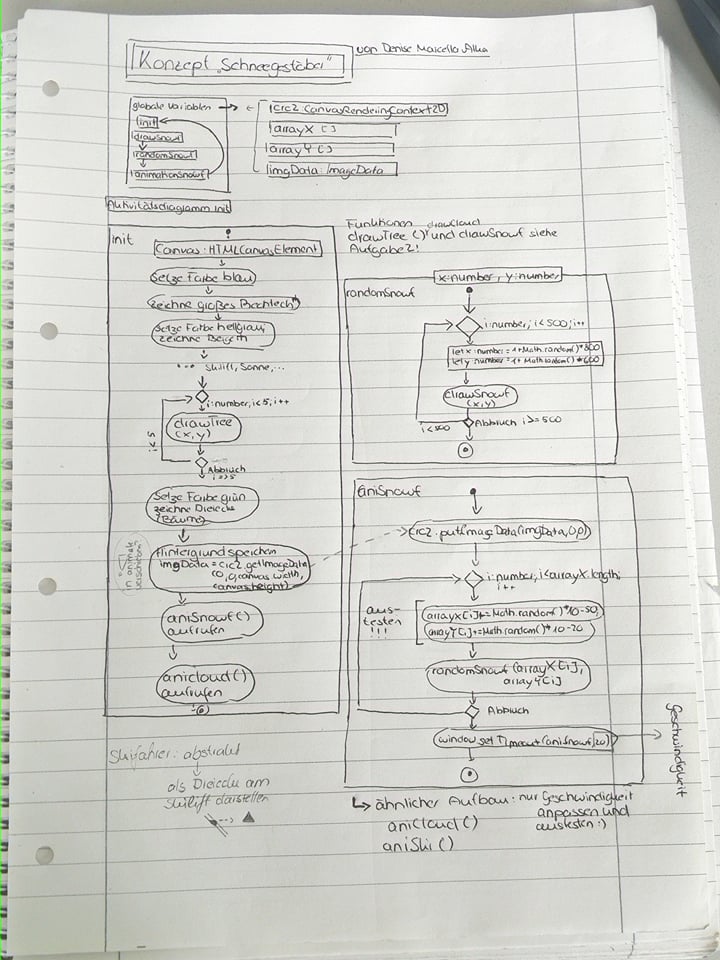 Konzept „Schneegestöber"
von Denise Marcella Alka
globale Variablen
init
drawSnowf
randomSnowf
animationSnowf
crc2: CanvasRenderingContext2D
arrayX []
arrayY []
imgData: ImageData
Aktivitätsdiagramm Init
init
Canvas: HTMLCanvasElement
Setze Farbe blau
zeichne großes Rechteck
Setze Farbe hellgrau,
zeichne Berge
... Skilift, Sonne,...
i:number, i<5, i++
drawTree
(x,y)
i<5
Abbruch
i>=5
Setze Farbe grün
zeichne Dreiecke
(Bäume)
Hintergrund speichen
imgData = crc2.getImageData
(0,0,canvas.width,
canvas.height)
in animate
verschieben?
aniSnowf()
aufrufen
anicloud()
aufrufen
Skifahrer: abstrakt
als Dreiecke am
Skilift darstellen
Funktionen drawCloud
drawTree()' und drawSnowf siehe
Aufgabe 2!
x:number, y:number
randomSnowf
i:number, i<500, i++
let x:number = 1+Math.random()*800
let y:number = 1+Math.random()*600
drawSnowf
(x,y)
i<500
Abbruch i>=500
aniSnowf
crc2.putImageData(imgData,0,0)
i:number, i<arrayX.length;
i++
aus-
testen
!!!
arrayX[i]+=Math.random()*10-50;
arrayY[i]+=Math.random()*10-20
randomSnowf(arrayX[i],
arrayY[i]
Abbruch
window.setTimeout(aniSnowf,20)
Geschwindigkeit
ähnlicher Aufbau: nur Geschwindigkeit
anpassen und
austesten :)
aniCloud()
aniSki()